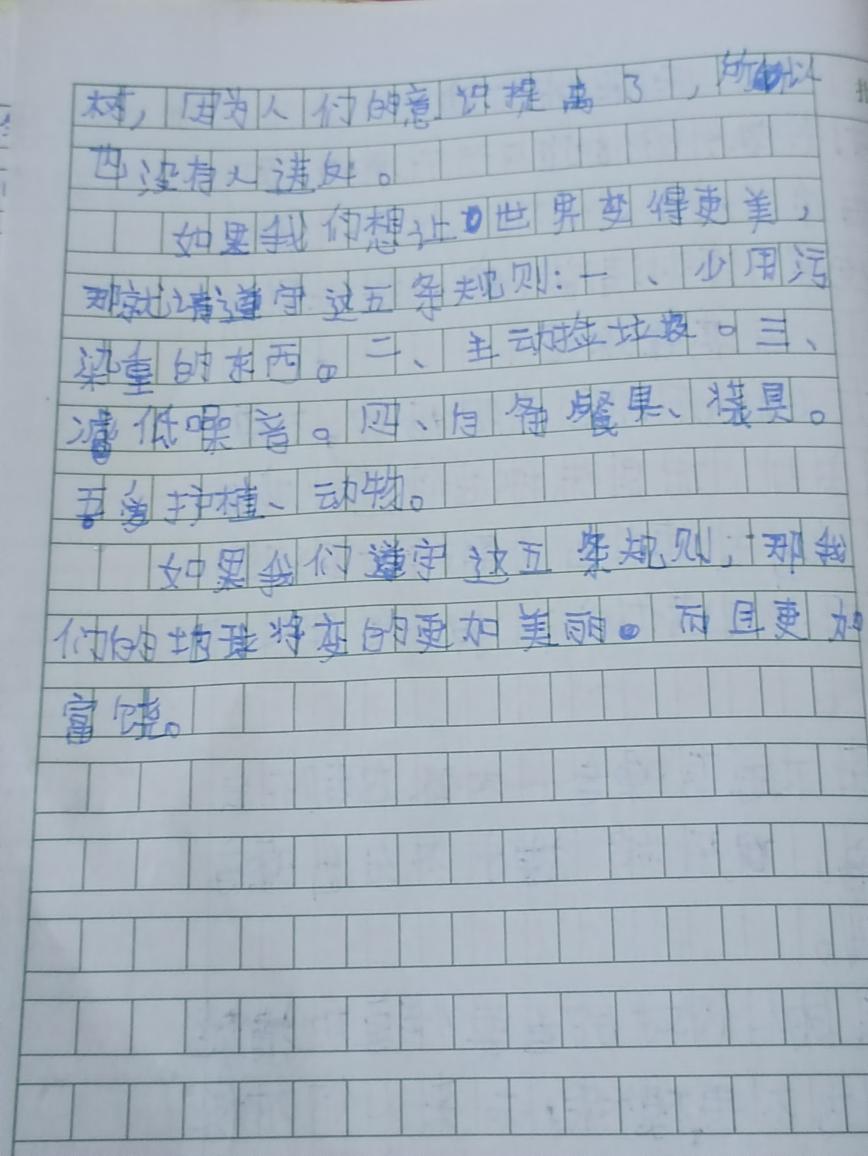 树，因为人们的意识提高了，所以
也没有人违处。
如果我们想让世界变得更美，
那就请遵守这五条规则：一、少用污
染重的东西。二、主动捡垃圾。三、
减低噪音。四、自备餐具、袋具。
五爱护植、动物。
如果我们遵守这五条规则，那我
们的地球将变的更加美丽。而且更加
富饶。